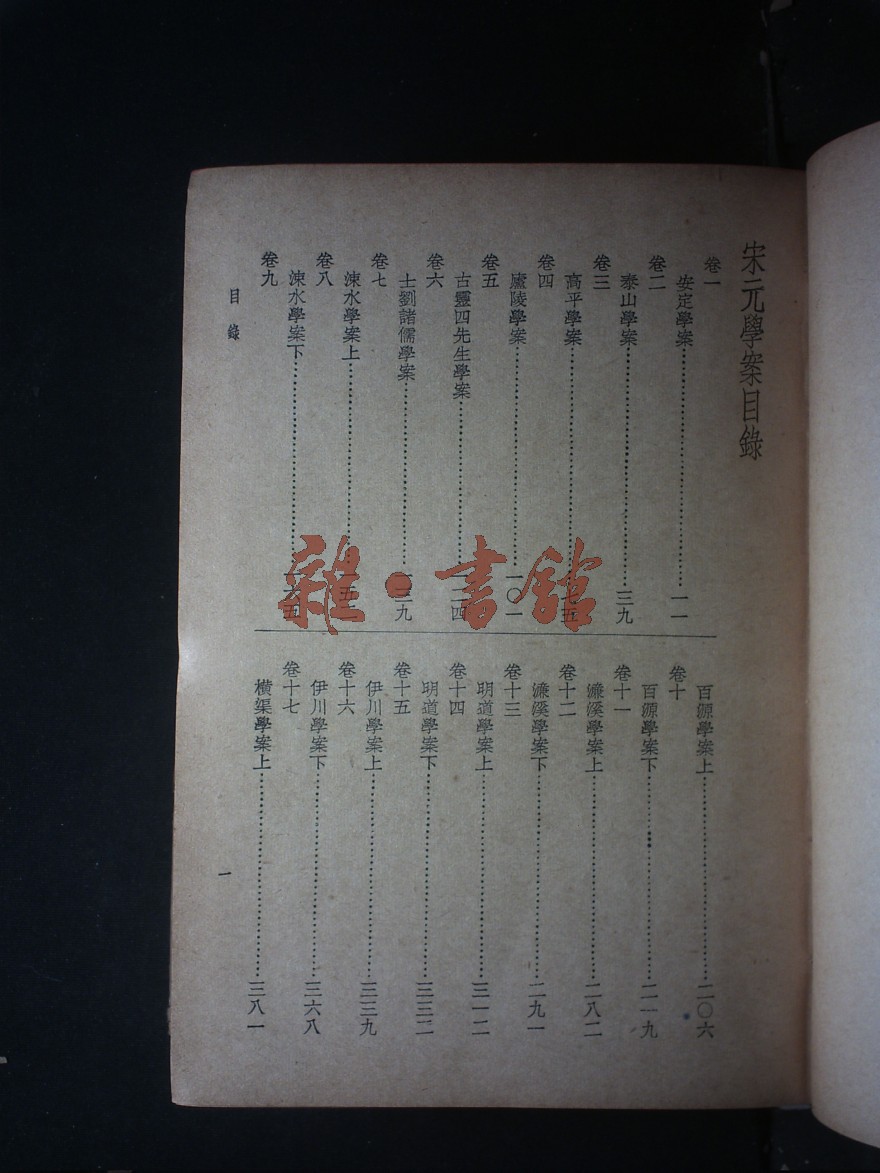 宋元學案目錄
卷一
安定學案……一一
卷二
泰山學案……三九
卷三
高平學案……五
卷四
廬陵學案……一〇一
卷五
古靈四先生學案……一二四
卷六
士劉諸儒學案……一三九
卷七
涑水學案上……一五
卷八
涑水學案下……一六五
卷九
百源學案上……二〇六
卷十
百源學案下……二一九
卷十一
濂溪學案上……二八二
卷十二
濂溪學案下……二九一
卷十三
明道學案上……三一二
卷十四
明道學案下……三三二
卷十五
伊川學案上……三三九
卷十六
伊川學案下……三六八
卷十七
橫渠學案上……三八一
目錄
一
雜·書館